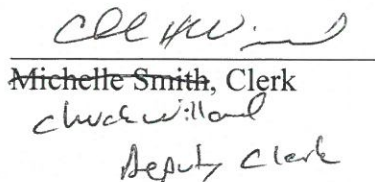 Michelle Smith, Clerk
Chuck Willard
Deputy Clerk